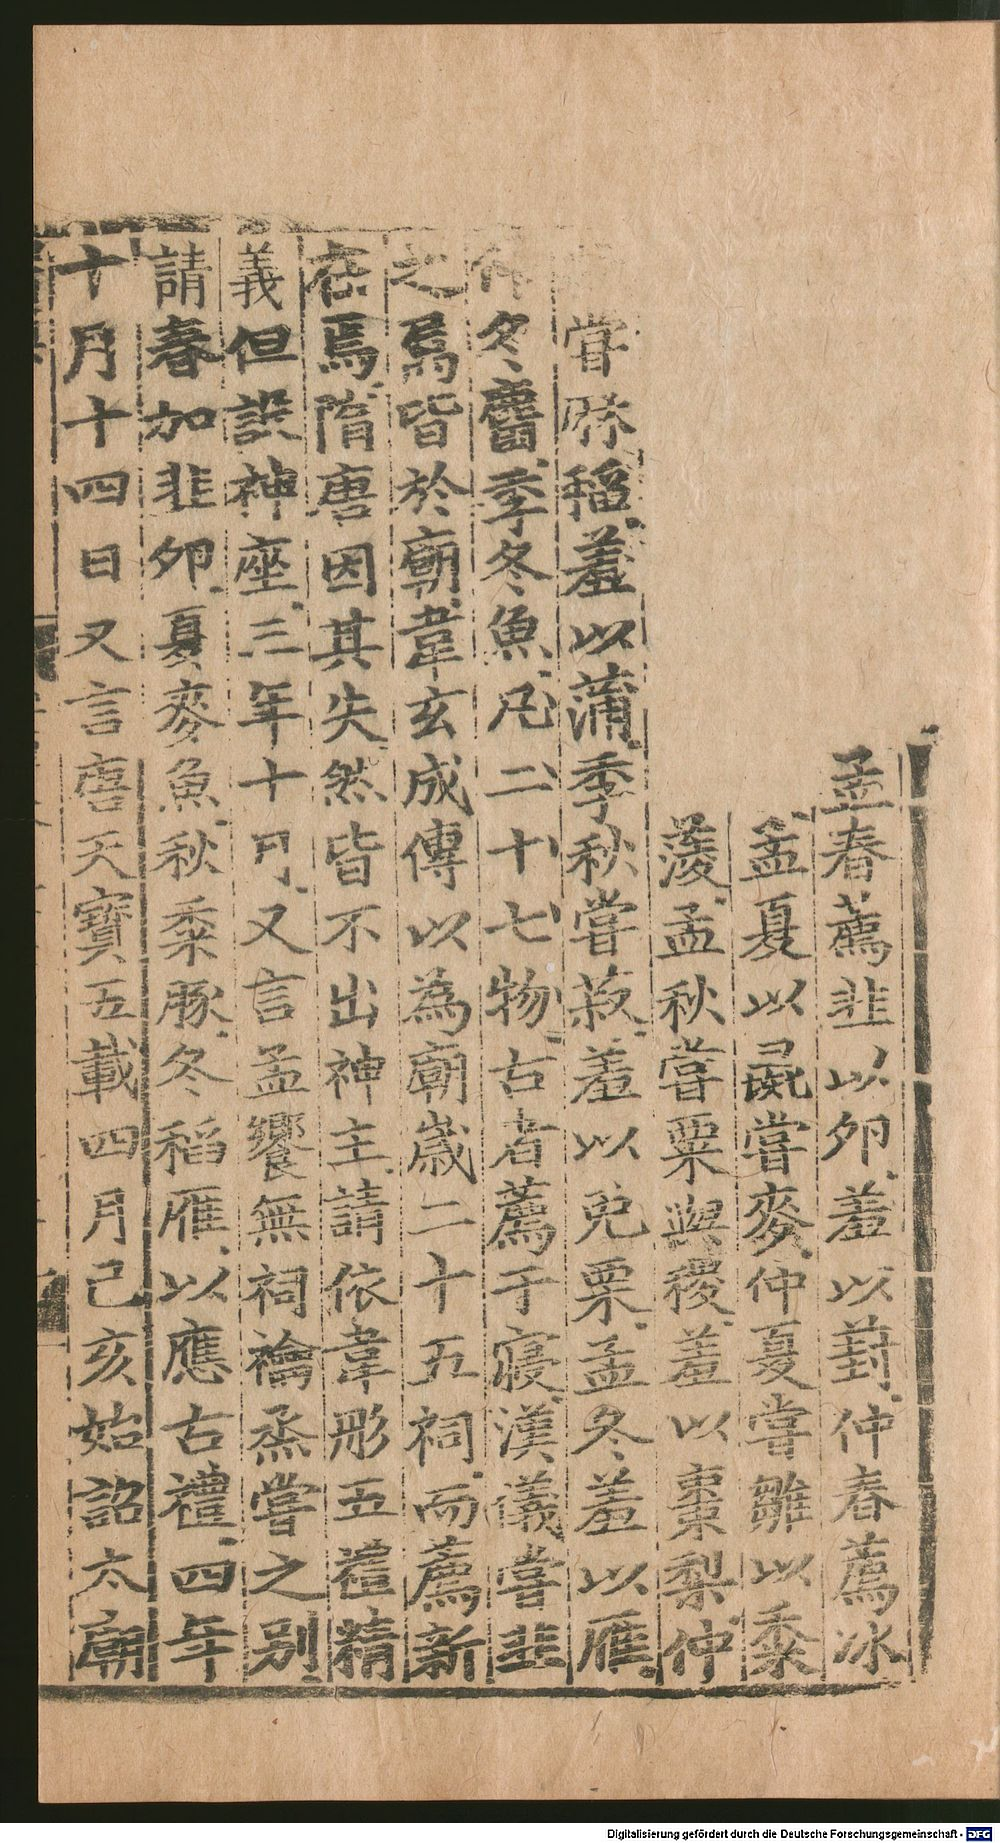 孟春薦韭以卵羞以葑仲春薦冰
孟夏以彘嘗麥仲夏嘗雛以黍
羞孟秋嘗粟與稷羞以棗梨仲
嘗麻稻羞以蒲季秋嘗菽羞以兎栗孟冬羞以雁
仲冬麕季冬魚凡二十七物古者薦于寢漢儀嘗韭
之屬皆於廟韋玄成傳以為廟歲二十五祠而薦新
在焉隋唐因其失然皆不出神主請依韋彤五禮精
義但設神座三年十月又言孟饗無祠禴烝嘗之別
請春加韭卵夏麥魚秋黍豚冬稻雁以應古禮四年
十月十四日又言唐天寶五載四月己亥始詔太廟
Digitalisierung gefördert durch die Deutsche Forschungsgemeinschaft - DFG